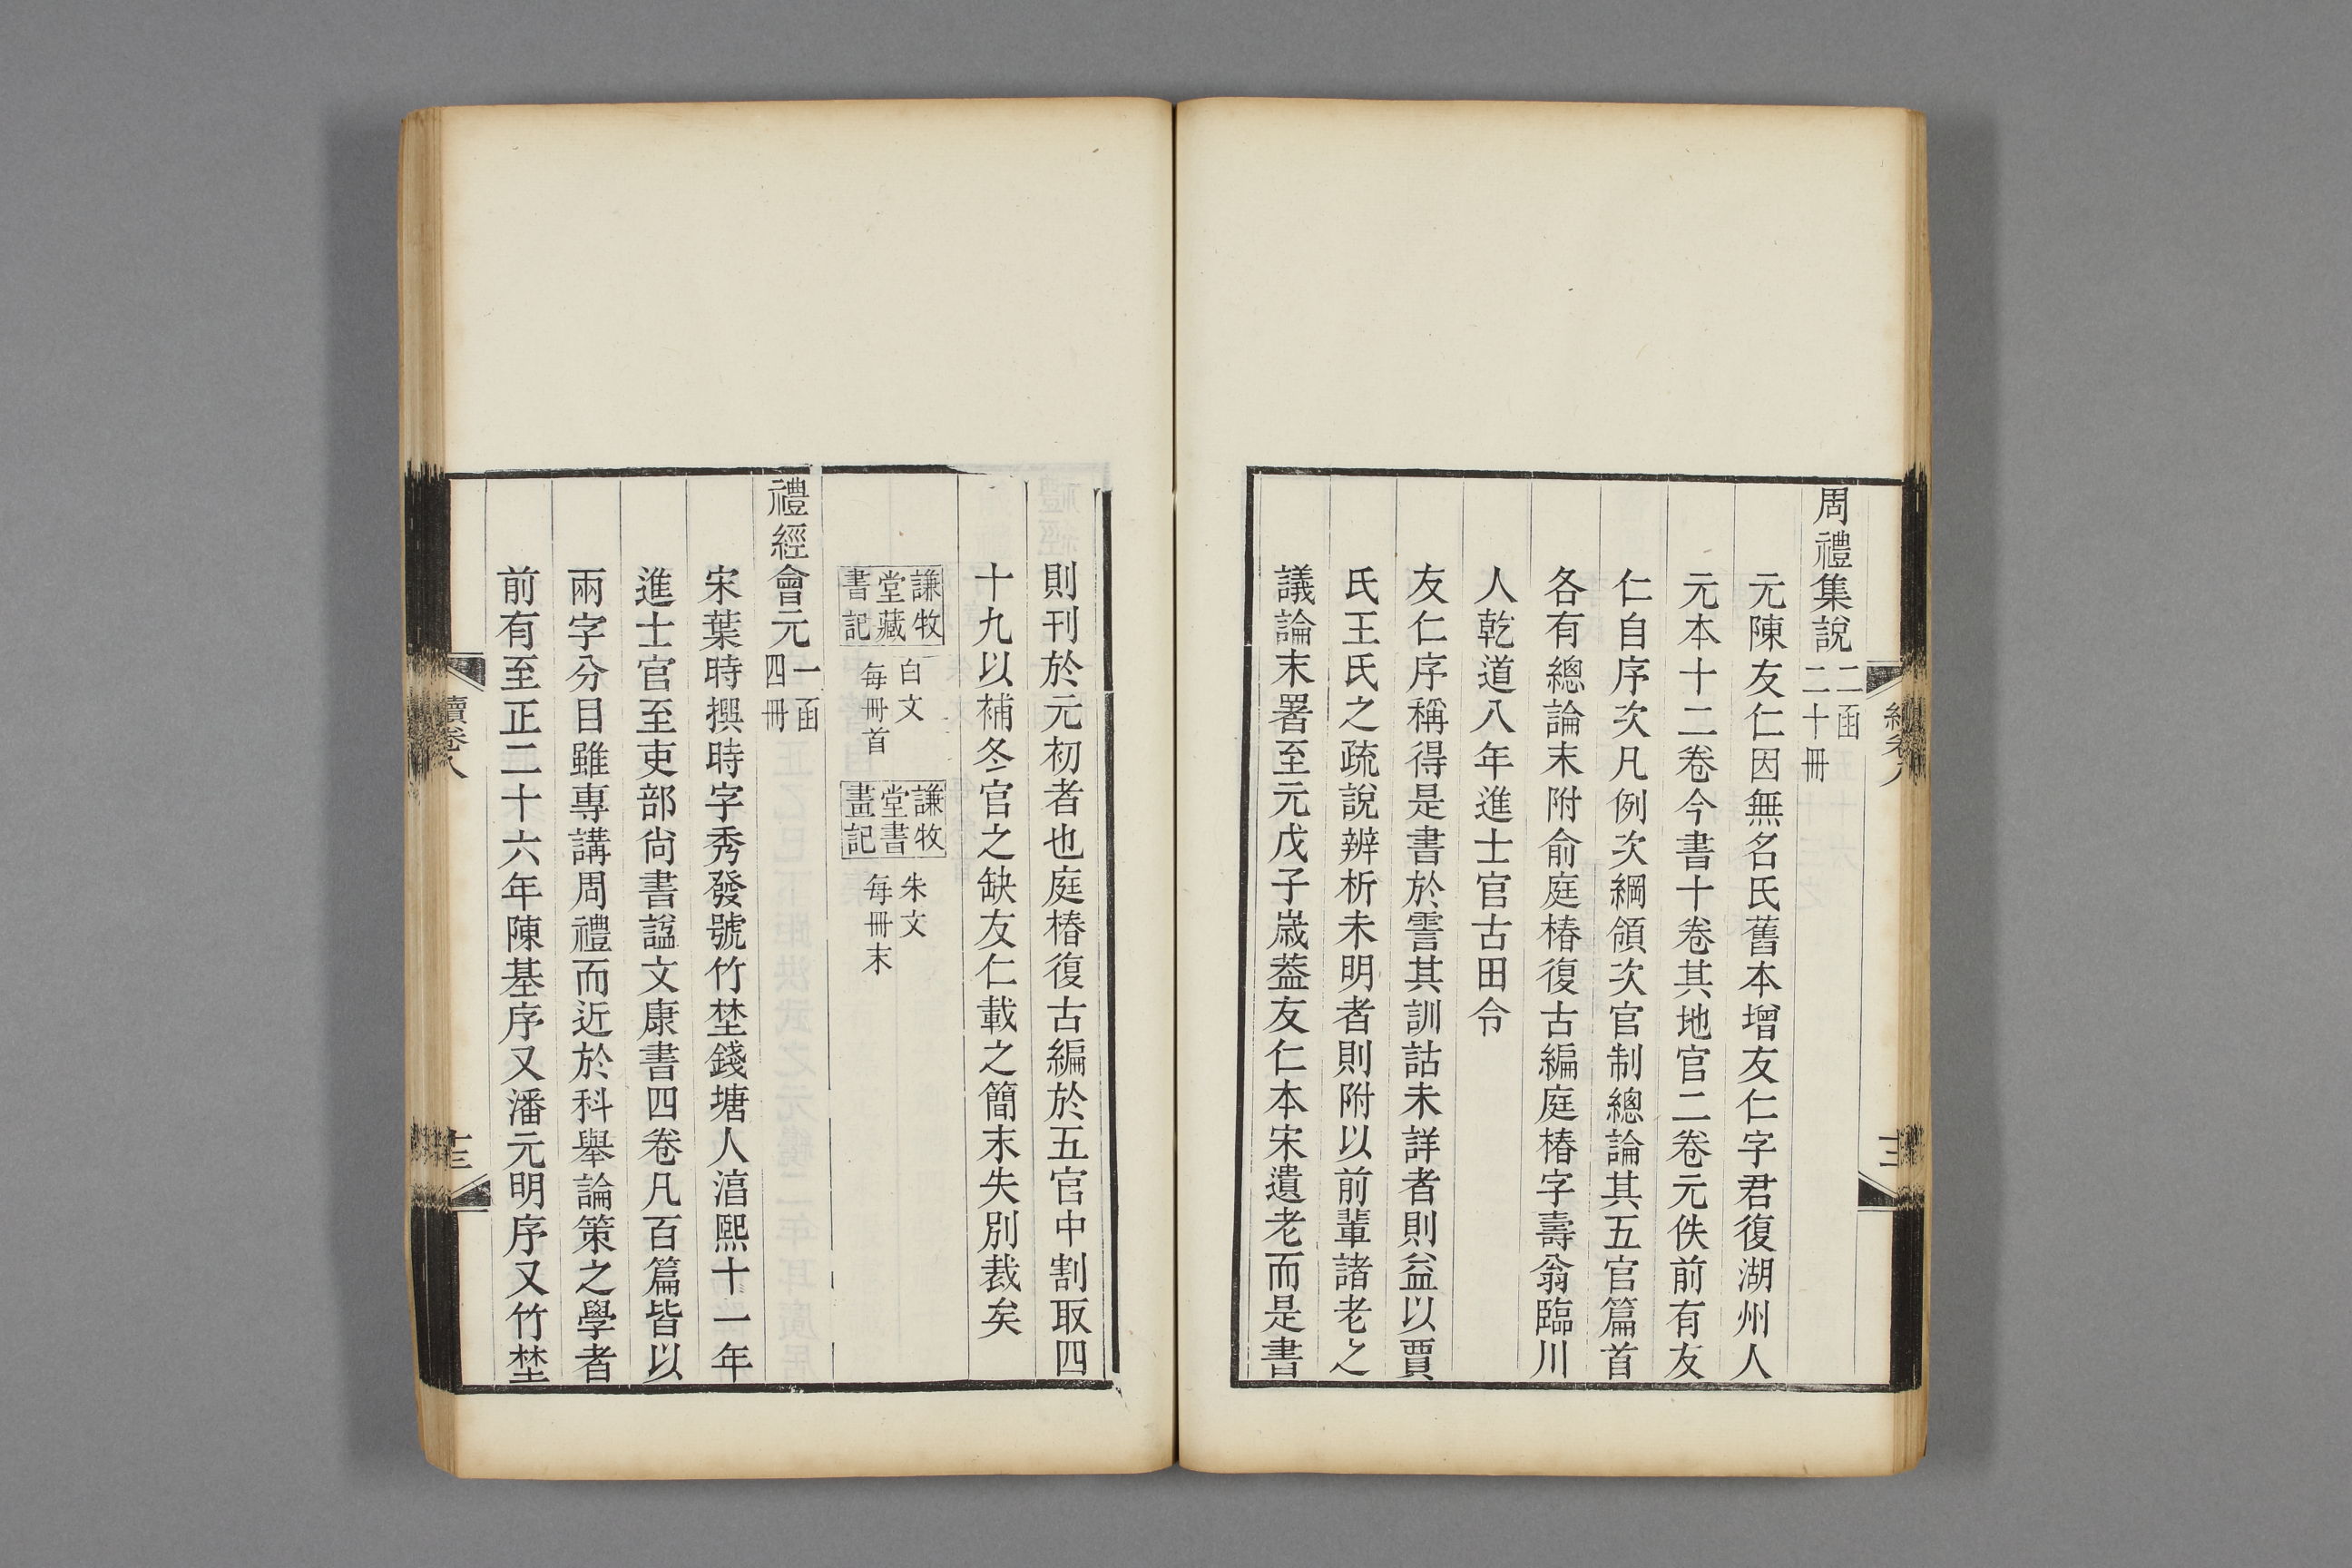 周禮集說 二函 二十冊
元陳友仁因無名氏舊本增友仁字君復湖州人
元本十二卷今書十卷其地官二卷元佚前有友
仁自序次凡例次綱領次官制總論其五官篇首
各有總論末附俞庭椿復古編庭椿字壽翁臨川
人乾道八年進士官古田令
友仁序稱得是書於霅其訓詁未詳者則益以賈
氏王氏之疏說辨析未明者則附以前輩諸老之
議論末署至元戊子歲葢友仁本宋遺老而是書
則刊於元初者也庭椿復古編於五官中割取四
十九以補冬官之缺友仁載之簡末失別裁矣
謙牧堂藏書記 白文 每冊首 謙牧堂書畫記 朱文 每冊末
禮經會元 一函 四冊
宋葉時撰時字秀發號竹埜錢塘人淳熙十一年
進士官至吏部尚書諡文康書四卷凡百篇皆以
兩字分目雖專講周禮而近於科舉論策之學者
前有至正二十六年陳基序又潘元明序又竹埜
續卷八
十三